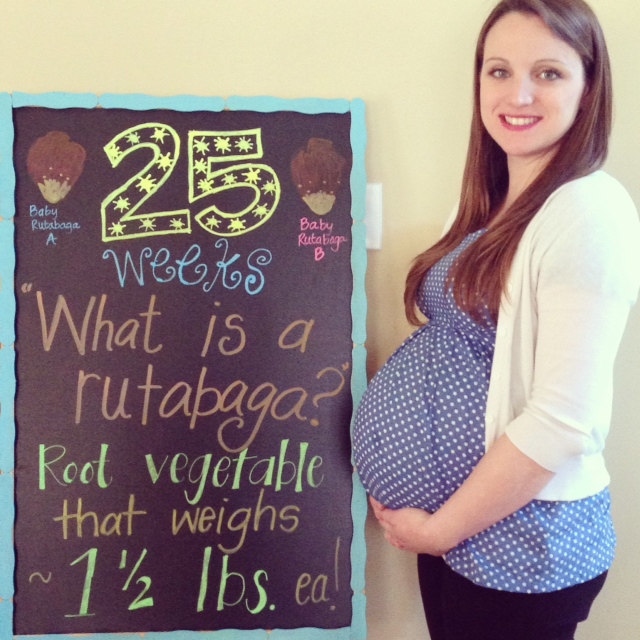 25
Weeks
Baby
Rutabaga
A
Baby
Rutabaga
B
"What is a
rutabaga?"
Root vegetable
that weighs
~ 1 1/2 lbs. ea!